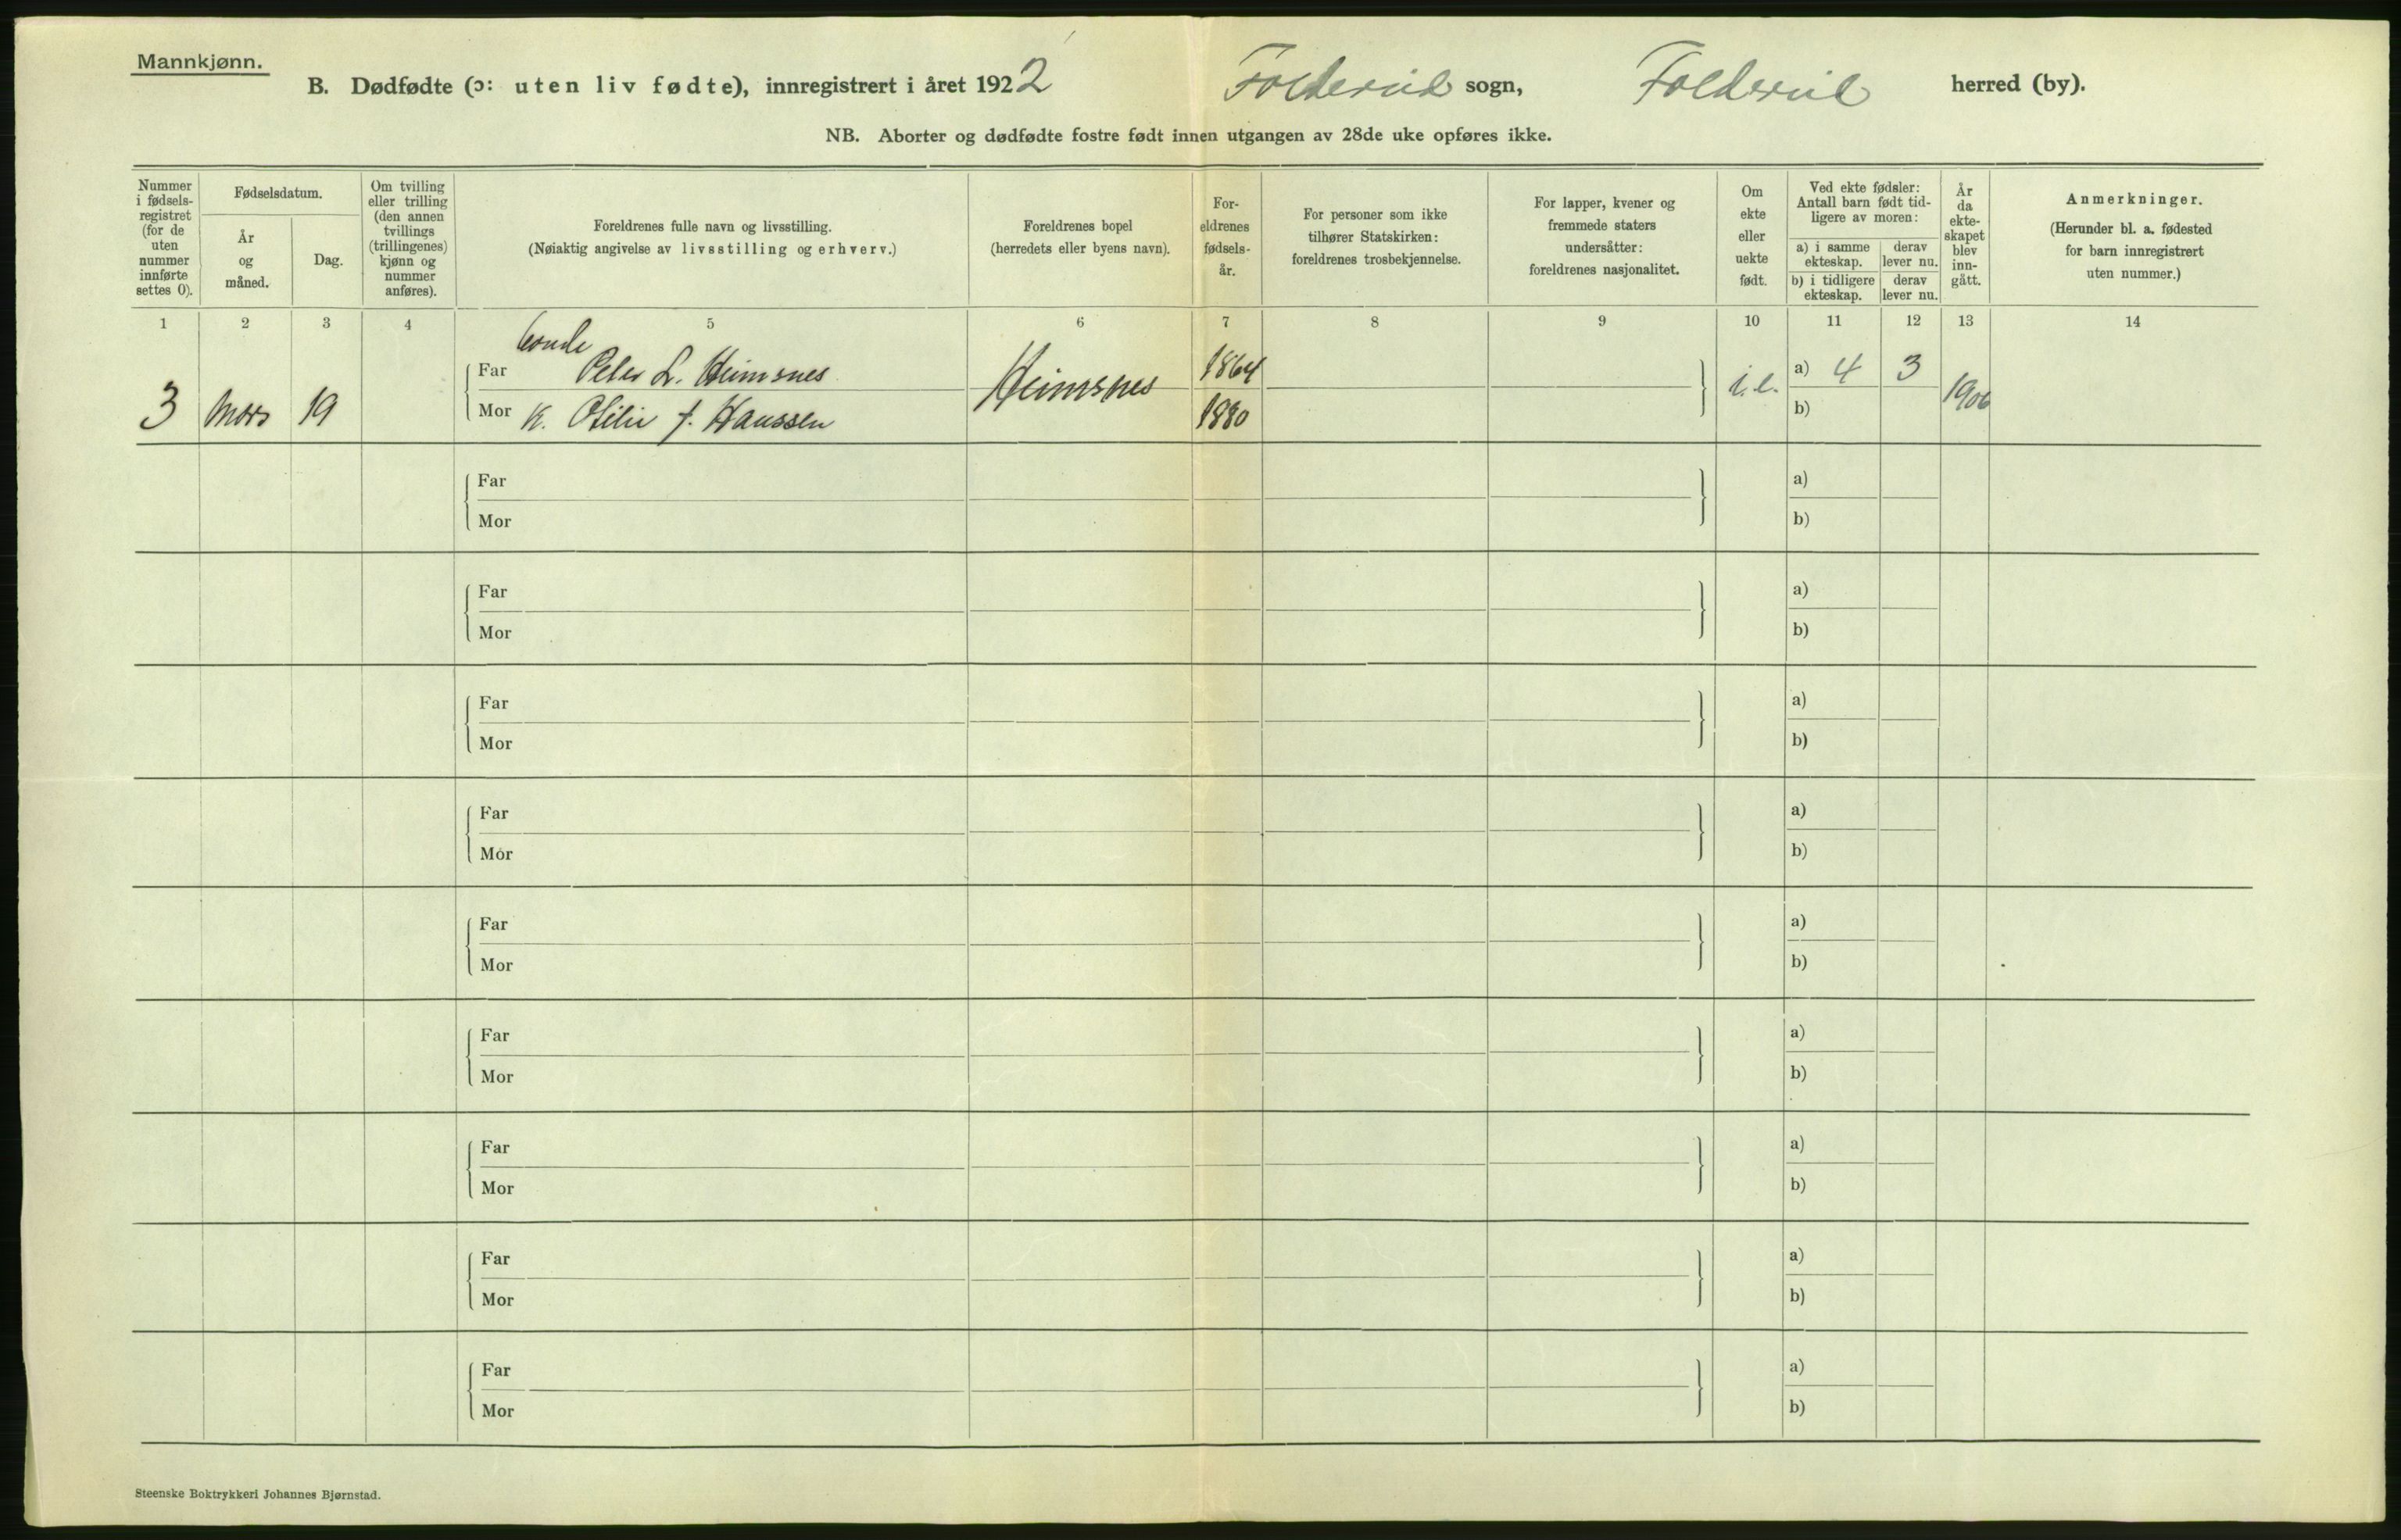 Mannkjønn.
B. Dødfødte (ɔ: uten liv fødte), innregistrert i året 1922 Foldereid sogn, Foldereid herred (by).
NB. Aborter og dødfødte fostre født innen utgangen av 28de uke opføres ikke.
Nummer
i fødsels-
registret
(for de
uten
nummer
innførte
settes 0).
Fødselsdatum.
År
og
måned.
Dag.
Om tvilling
eller trilling
(den annen
tvillings
(trillingenes)
kjønn og
nummer
anføres).
Foreldrenes fulle navn og livsstilling.
(Nøiaktig angivelse av livsstilling og erhverv.)
Foreldrenes bopel
(herredets eller byens navn).
For-
eldrenes
fødsels-
år.
For personer som ikke
tilhører Statskirken:
foreldrenes trosbekjennelse.
For lapper, kvener og
fremmede staters
undersåtter:
foreldrenes nasjonalitet.
Om
ekte
eller
uekte
født.
Ved ekte fødsler:
Antall barn født tid-
ligere av moren:
a) i samme
ekteskap.
derav
lever nu.
b) i tidligere
ekteskap.
derav
lever nu.
År
da
ekte-
skapet
blev
inn-
gått.
Anmerkninger.
(Herunder bl. a. fødested
for barn innregistrert
uten nummer.)
1 2 3 4 5 6 7 8 9 10 11 12 13 14
bonde
Far Peter L. Heimsnes 1864 a) 4 3
3 Mars 19 Heimsnes i.e. 1906
Mor K. Otilie f. Hanssen 1880 b)
Far a)
Mor b)
Far a)
Mor b)
Far a)
Mor b)
Far a)
Mor b)
Far a)
Mor b)
Far a)
Mor b)
Far a)
Mor b)
Far a)
Mor b)
Far a)
Mor b)
Steenske Boktrykkeri Johannes Bjørnstad.